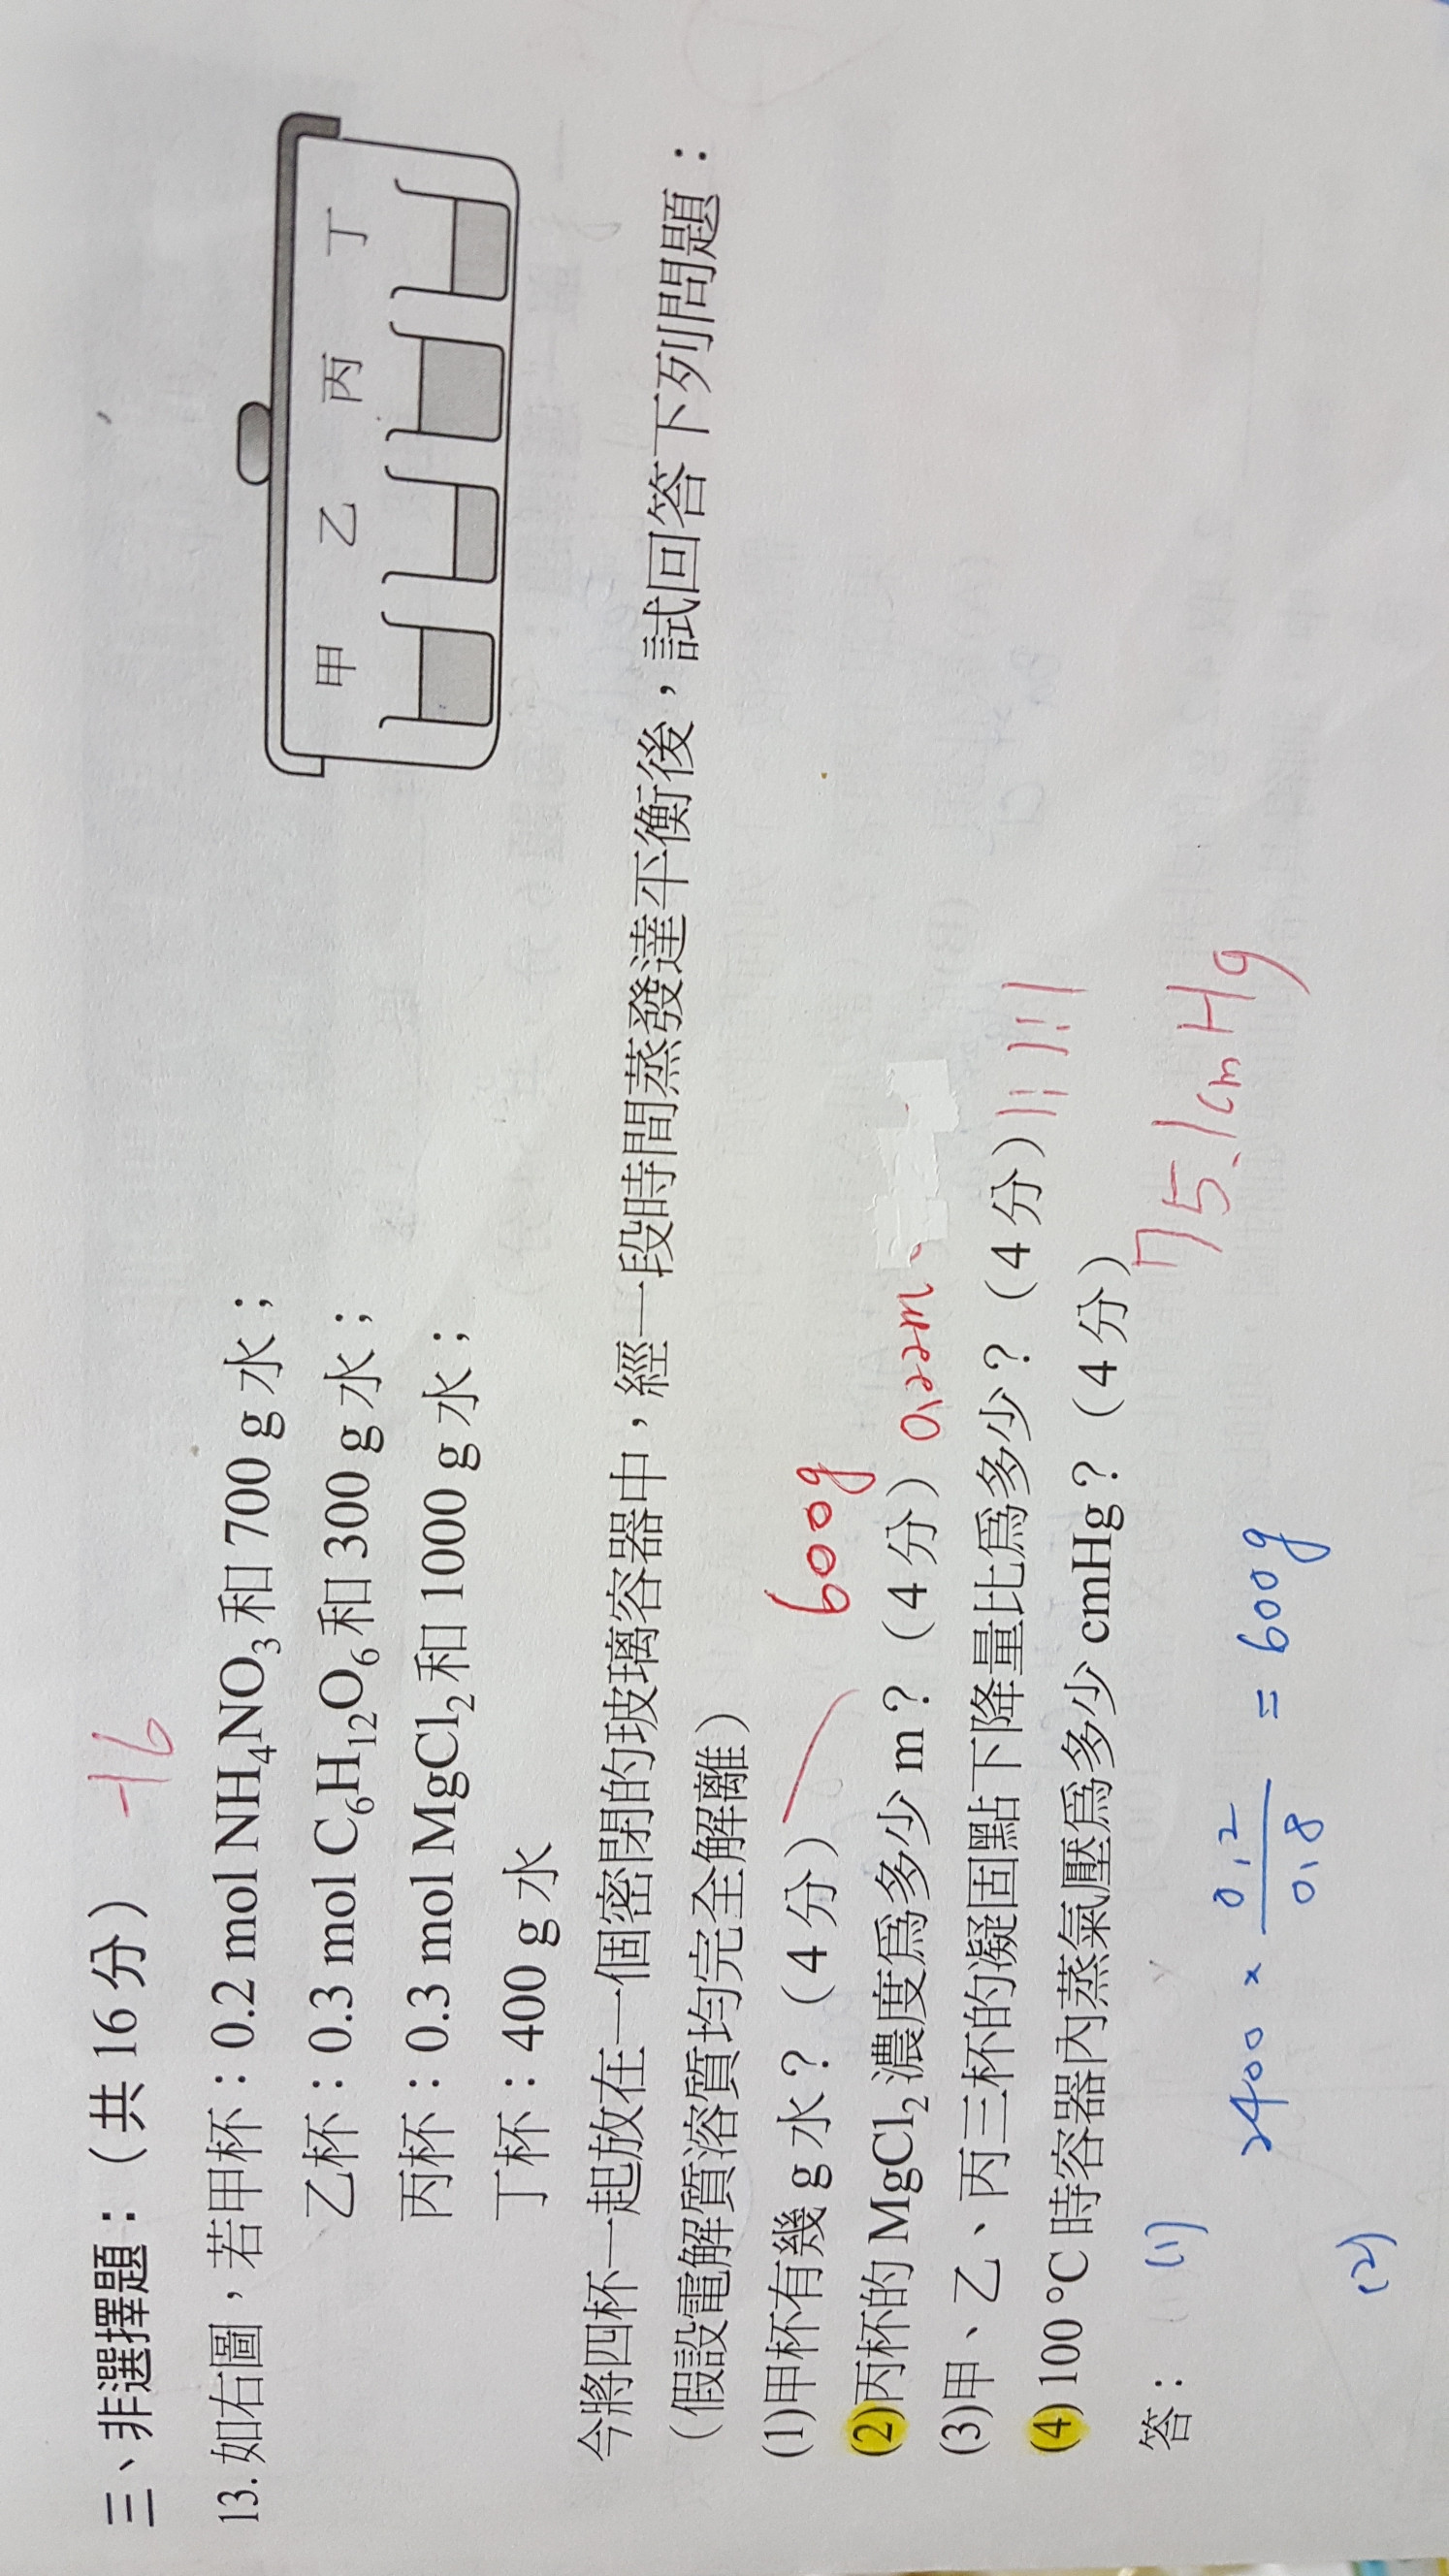 三、非選擇題：（共 16 分） -16
13. 如右圖，若甲杯：0.2 mol NH₄NO₃和 700 g 水；
乙杯：0.3 mol C₆H₁₂O₆和 300 g 水；
丙杯：0.3 mol MgCl₂和 1000 g 水；
丁杯：400 g 水
甲 乙 丙 丁
今將四杯一起放在一個密閉的玻璃容器中，經一段時間蒸發達平衡後，試回答下列問題：
（假設電解質溶質均完全解離）
(1)甲杯有幾 g 水？（4 分） 600g
(2)丙杯的 MgCl₂濃度爲多少 m？（4 分） 0.22m
(3)甲、乙、丙三杯的凝固點下降量比爲多少？（4 分） 1:1:1
(4) 100 °C 時容器內蒸氣壓爲多少 cmHg？（4 分） 75.1cmHg
答：
(1)
2400 × 0.2/0.8 = 600g
(2)